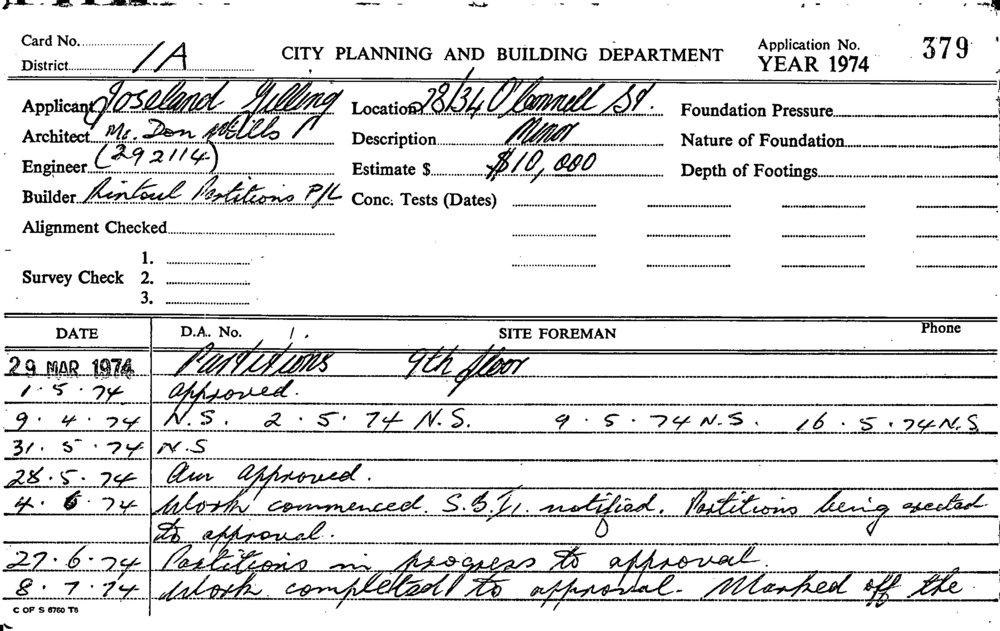 Card No.
District 1A
CITY PLANNING AND BUILDING DEPARTMENT
Application No. 379
YEAR 1974
Applicant Joseland Gilling
Location 28/34 O'Connell St.
Foundation Pressure
Architect Mr. Don Wells
Description Minor
Nature of Foundation
Engineer (292114)
Estimate $ $10,000
Depth of Footings
Builder Rintoul Partitions P/L
Conc. Tests (Dates)
Alignment Checked
Survey Check 1.
2.
3.
DATE D.A. No. 1. SITE FOREMAN Phone
29 MAR 1974 Partitions 9th floor
1.5.74 Approved.
9.4.74 N.S. 2.5.74 N.S. 9.5.74 N.S. 16.5.74 N.S
31.5.74 N.S
28.5.74 approved.
4.6.74 Work commenced. S.B.I. notified. Partitions being erected
to approval.
27.6.74 Partitions in progress to approval.
8.7.74 Work completed to approval. Marked off the
C OF S 6760 T6